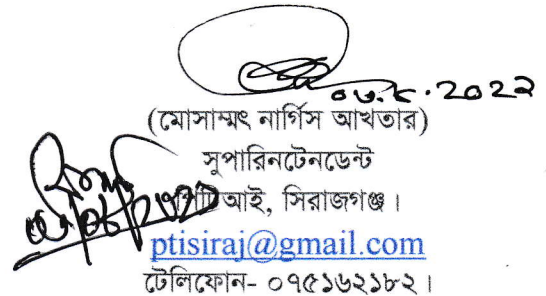 (মোসাম্মৎ নার্গিস আখতার)
সুপারিনটেনডেন্ট
পিটিআই, সিরাজগঞ্জ।
ptisiraj@gmail.com
টেলিফোন- ০৭৫১৬২১৮২।